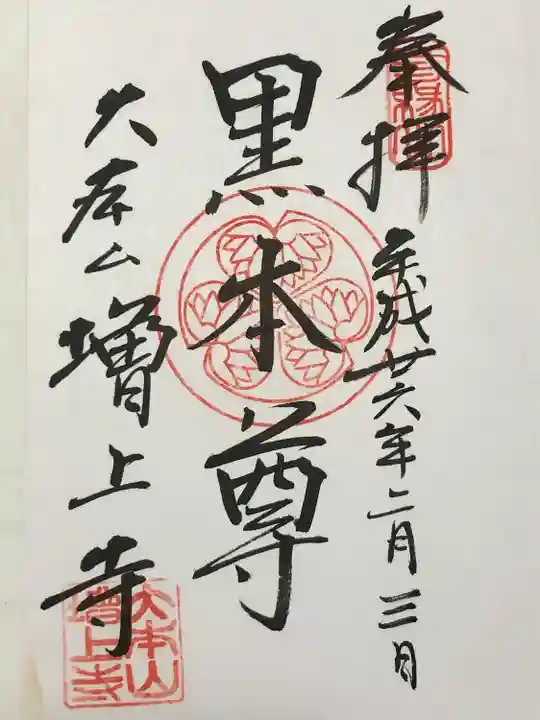 奉拝
平成廿六年二月三日
黒本尊
大本山
増上寺
大本山
増上寺